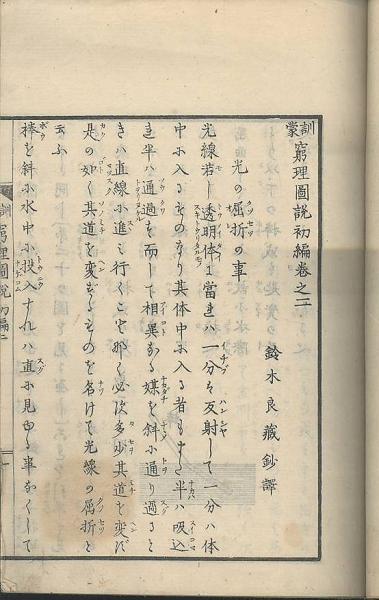 訓蒙 窮理圖説初編卷之二
鈴木良藏鈔譯
光の屈折の事
光線若し透明体に當れハ一分ハ反射して一分ハ体
中に入るものなり其体中に入る者もまた半ハ吸込
ま半ハ通過を而して相異なる媒を斜に通り過ると
きハ直線に進ミ行くこと那く必ず多少其道を変ず
是の如く其道を変ずるものを名けて光線の屈折と
云ふ
棒を斜に水中に投入すれハ直に見ゆる事なくして
訓 窮理圖説 初編二